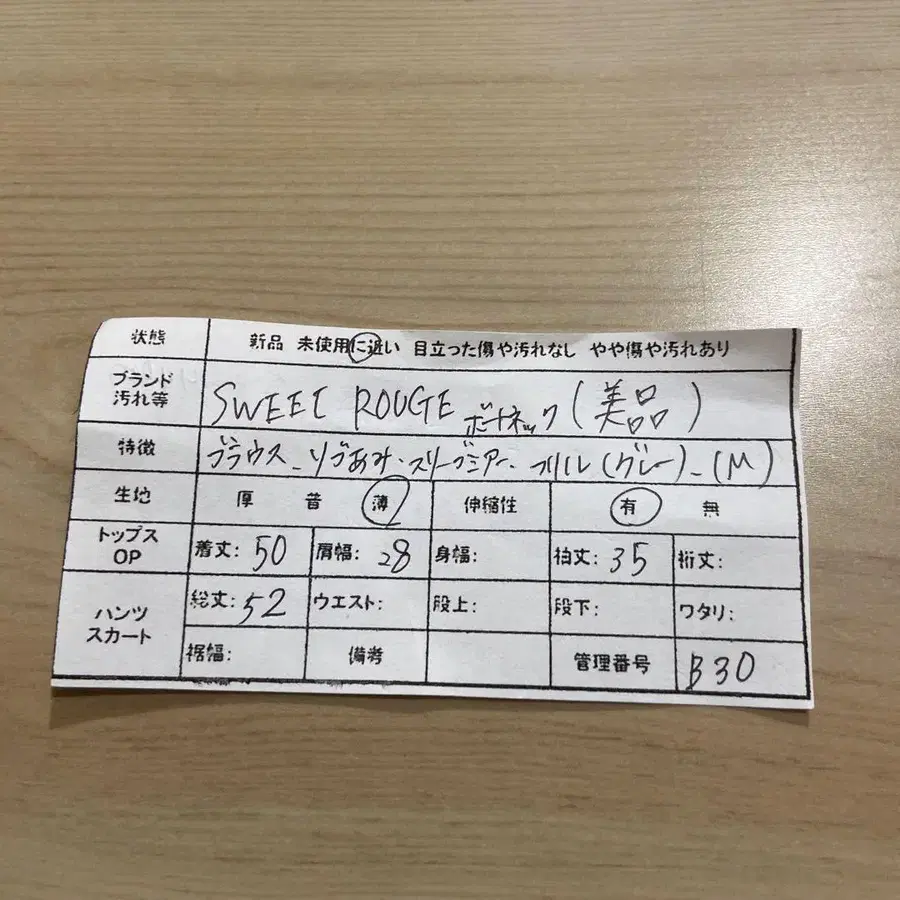 状態 新品 未使用に近い 目立った傷や汚れなし やや傷や汚れあり
ブランド 汚れ等 SWEET ROUGE ボートネック(美品)
特徴 ブラウス - リブあみ・スリーブシアー・フリル(グレー) - (M)
生地 厚 普 薄 伸縮性 有 無
トップス OP 着丈: 50 肩幅: 28 身幅: 袖丈: 35 裄丈:
パンツ スカート 総丈: 52 ウエスト: 股上: 股下: ワタリ:
裾幅: 備考 管理番号 B30